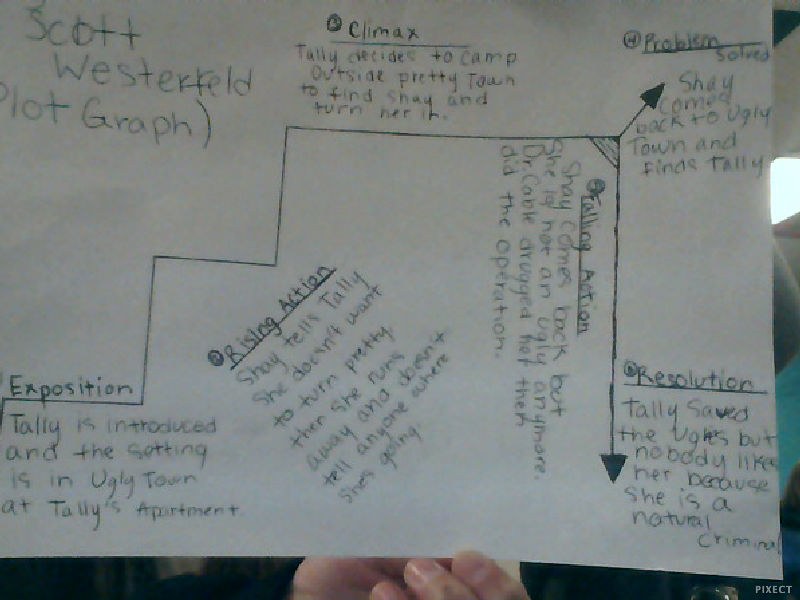 Scott
Westerfeld
Plot Graph)
Climax
Tally decides to camp
outside pretty Town
to find Shay and
turn her in.
④ Problem
Solved
Shay
comes
back to Ugly
Town and
finds Tally
Falling Action
Shay comes back but
She is not an ugly anymore.
Dr. Cable drugged her then
did the operation.
Rising Action
Shay tells Tally
She doesn't want
to turn pretty.
then she runs
away and doesn't
tell anyone where
shes going
Exposition
Tally is introduced
and the setting
is in Ugly Town
at Tally's Apartment.
Resolution
Tally Saved
the Uglies but
nobody likes
her because
She is a
natural
criminal
PIXECT